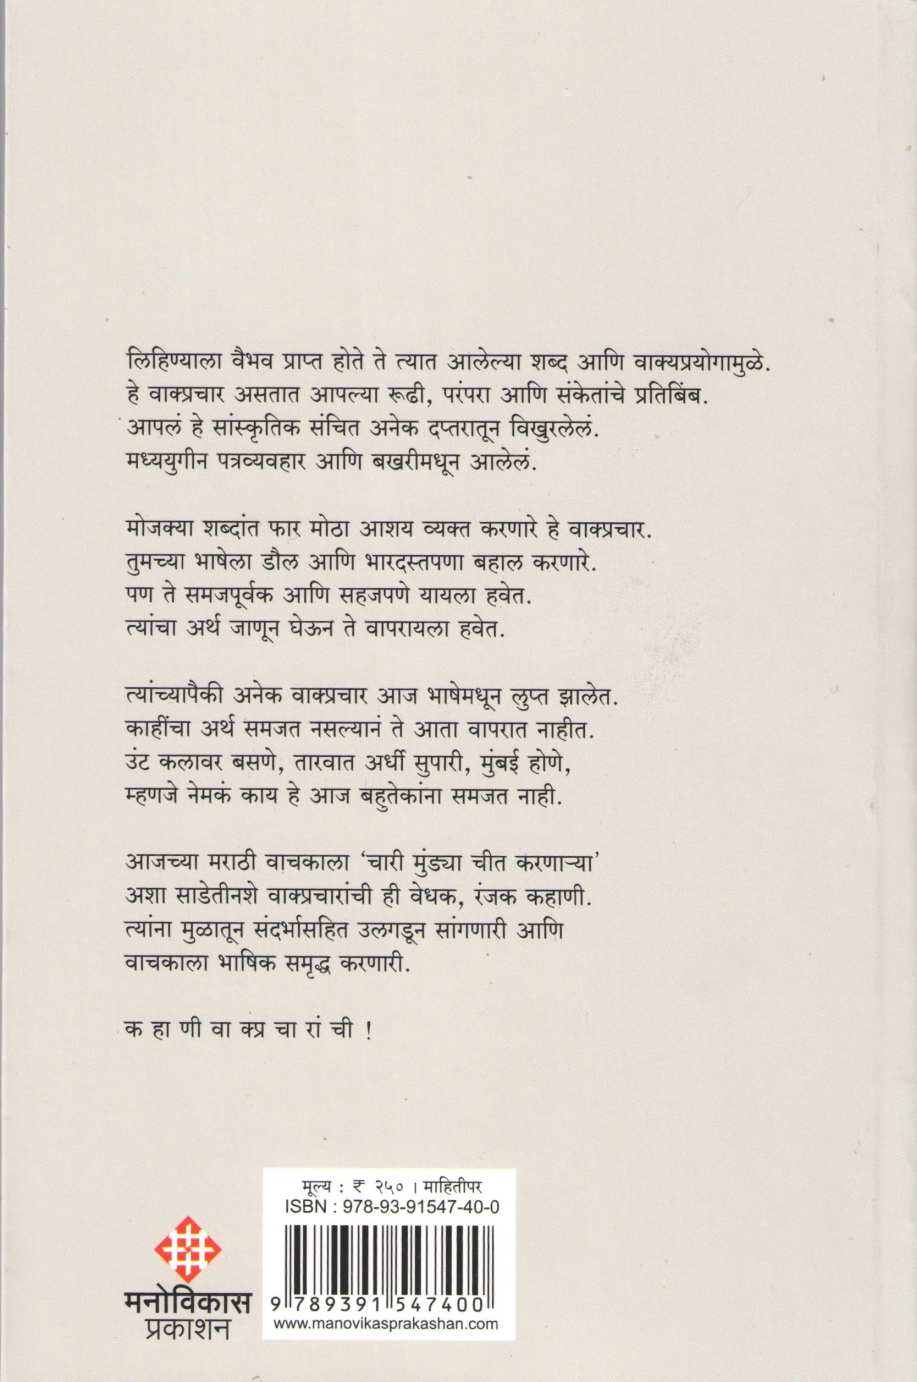 लिहिण्याला वैभव प्राप्त होते ते त्यात आलेल्या शब्द आणि वाक्यप्रयोगामुळे.
हे वाक्प्रचार असतात आपल्या रूढी, परंपरा आणि संकेतांचे प्रतिबिंब.
आपलं हे सांस्कृतिक संचित अनेक दप्तरातून विखुरलेलं.
मध्ययुगीन पत्रव्यवहार आणि बखरीमधून आलेलं.
मोजक्या शब्दांत फार मोठा आशय व्यक्त करणारे हे वाक्प्रचार.
तुमच्या भाषेला डौल आणि भारदस्तपणा बहाल करणारे.
पण ते समजपूर्वक आणि सहजपणे यायला हवेत.
त्यांचा अर्थ जाणून घेऊन ते वापरायला हवेत.
त्यांच्यापैकी अनेक वाक्प्रचार आज भाषेमधून लुप्त झालेत.
काहींचा अर्थ समजत नसल्यानं ते आता वापरात नाहीत.
उंट कलावर बसणे, तारवात अर्धी सुपारी, मुंबई होणे,
म्हणजे नेमकं काय हे आज बहुतेकांना समजत नाही.
आजच्या मराठी वाचकाला ‘चारी मुंड्या चीत करणाऱ्या’
अशा साडेतीनशे वाक्प्रचारांची ही वेधक, रंजक कहाणी.
त्यांना मुळातून संदर्भासहित उलगडून सांगणारी आणि
वाचकाला भाषिक समृद्ध करणारी.
क हा णी वा क्प्र चा रां ची !
मूल्य : ₹ २५० । माहितीपर
ISBN : 978-93-91547-40-0
9 789391 547400
www.manovikasprakashan.com
मनोविकास
प्रकाशन